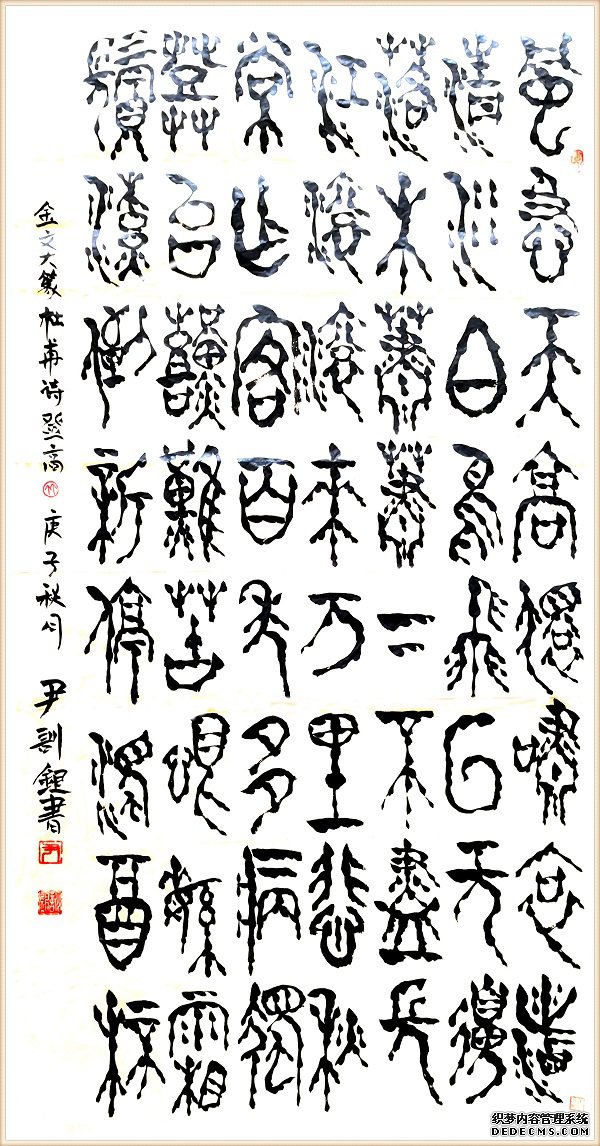 風急天高猿嘯哀渚
清沙白鳥飛回無邊
落木蕭蕭下不盡長
江滾滾來万里悲秋
常作客百年多病獨
登台艱難苦恨繁霜
鬢潦倒新停濁酒杯
金文大篆杜甫诗登高 庚子秋月 尹書
织梦内容管理系统
DEDECMS.COM